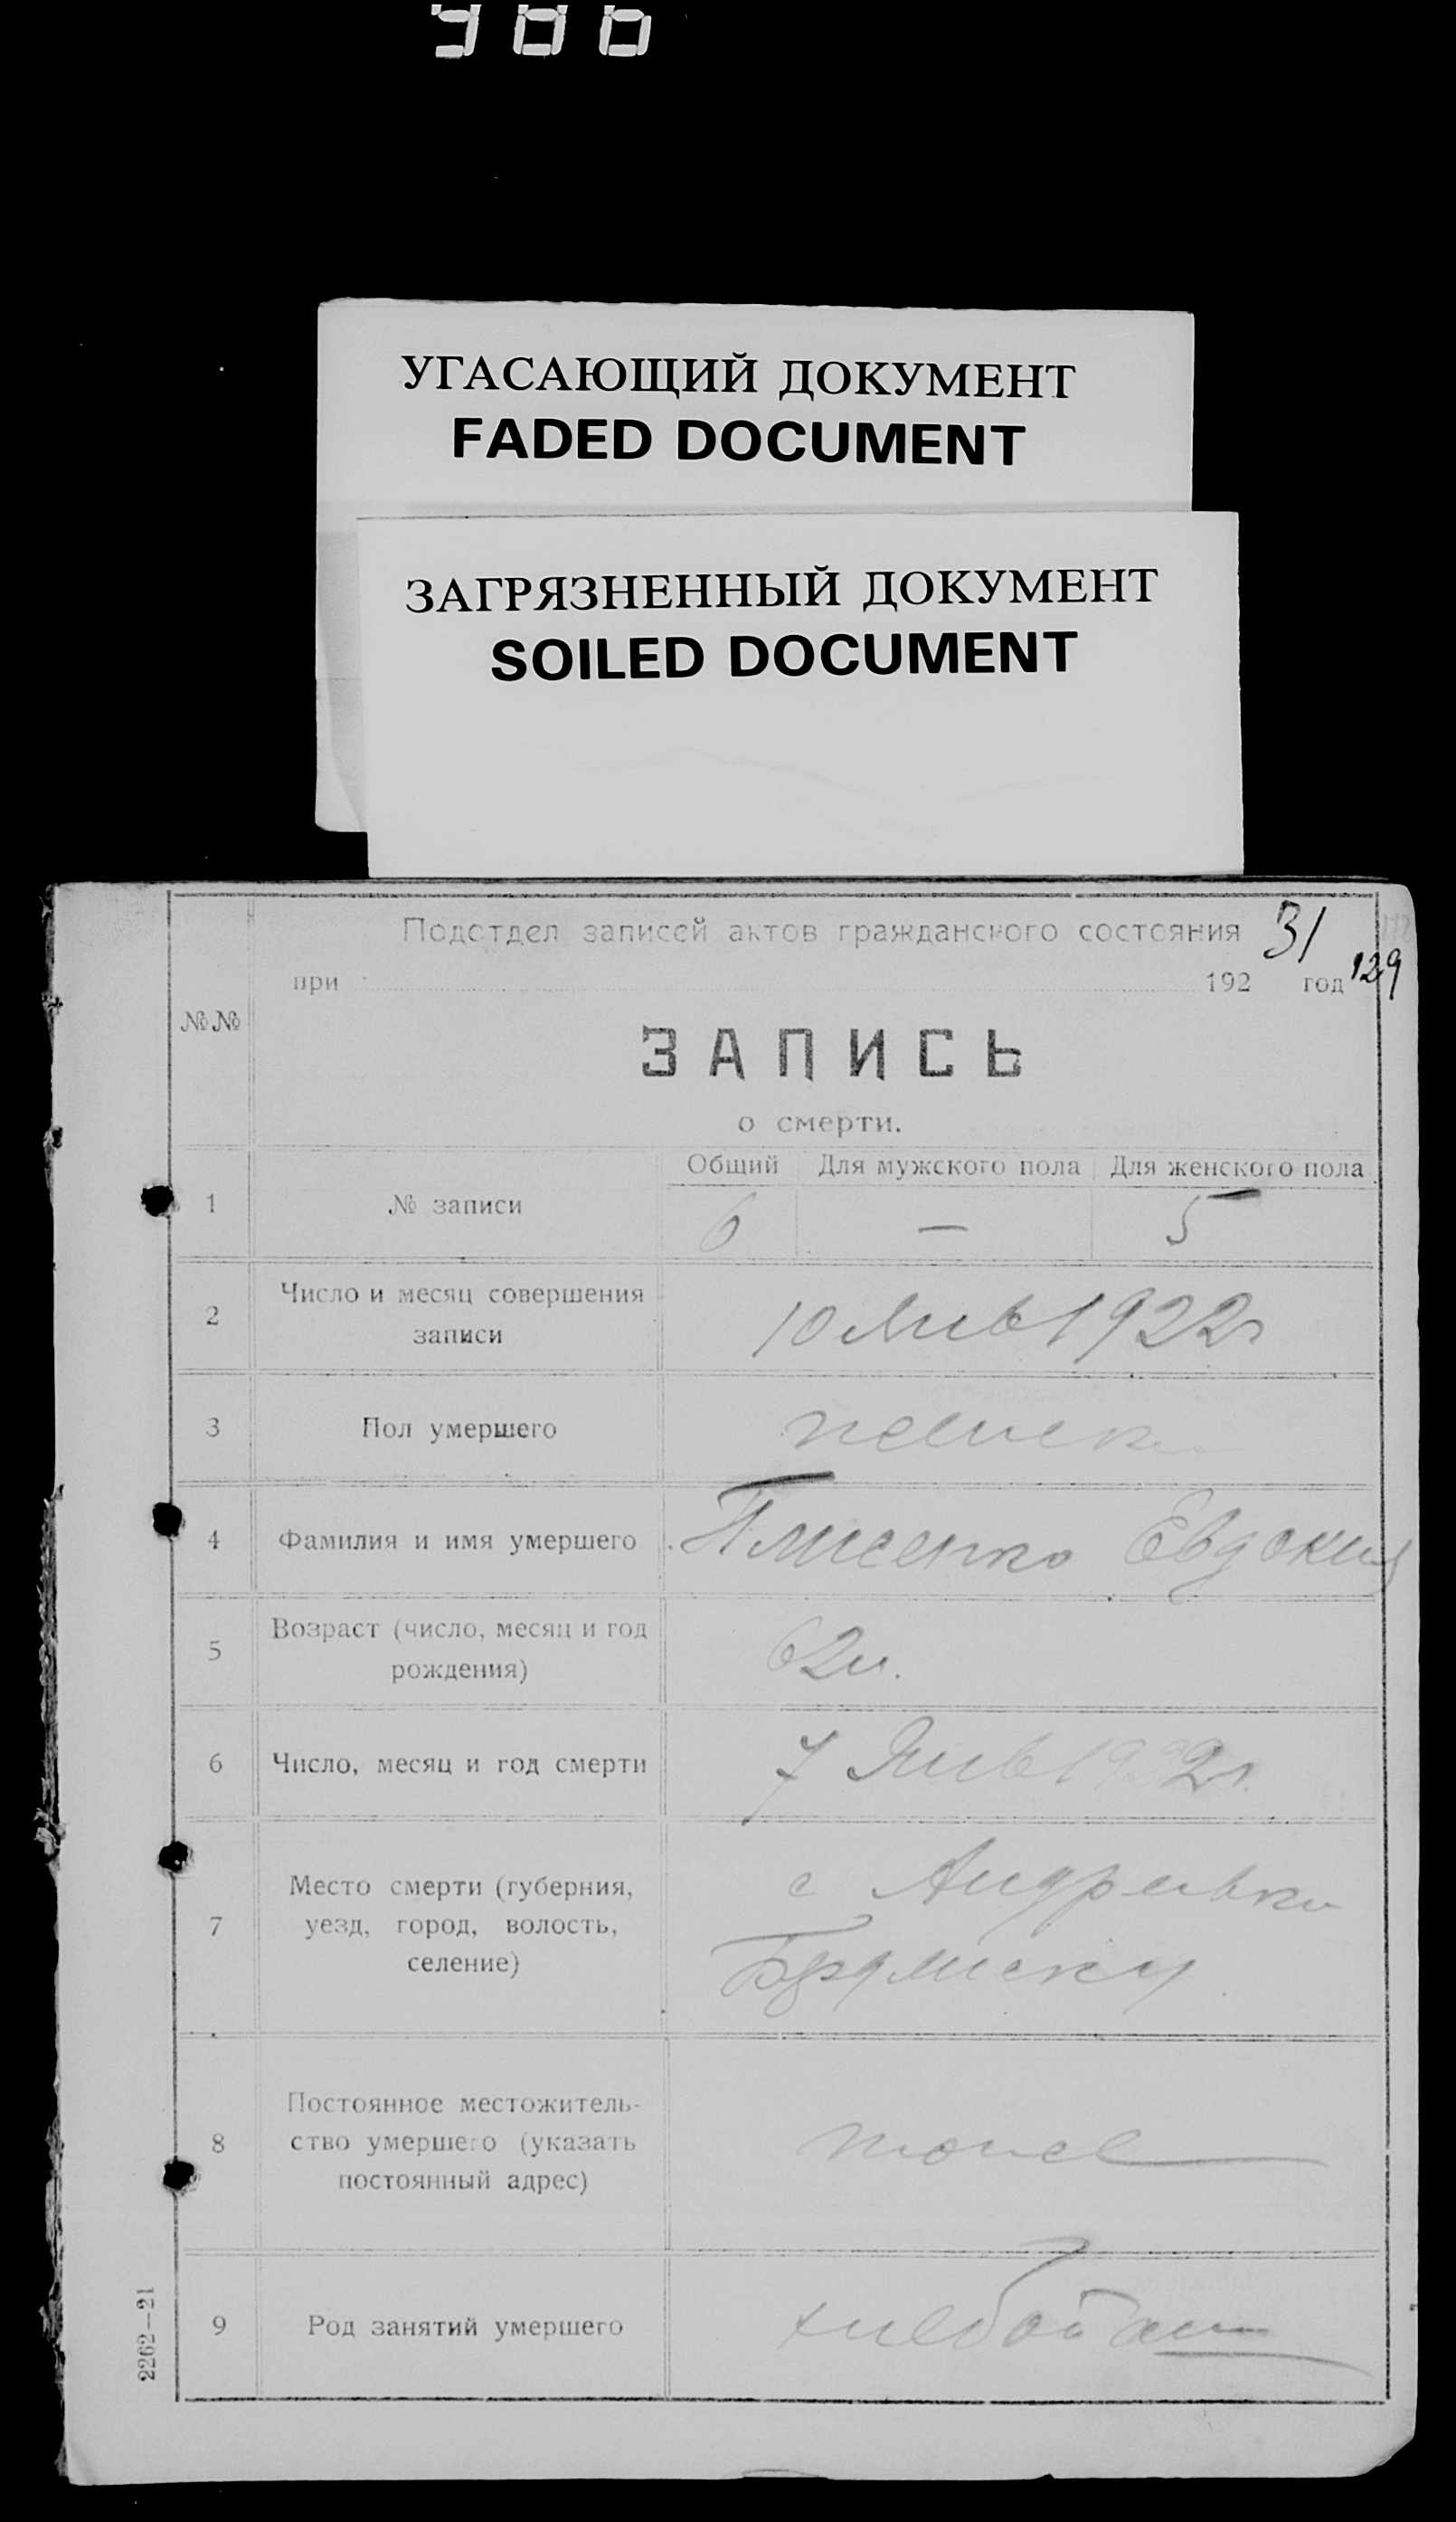 УГАСАЮЩИЙ ДОКУМЕНТ
FADED DOCUMENT
ЗАГРЯЗНЕННЫЙ ДОКУМЕНТ
SOILED DOCUMENT
Подотдел записей актов гражданского состояния 31
при 192 год 129
№№
ЗАПИСЬ
о смерти.
Общий Для мужского пола Для женского пола
1 № записи 6 — 5
2 Число и месяц совершения
записи
10 Янв 1922г
3 Пол умершего женск
4 Фамилия и имя умершего Евдокия
5 Возраст (число, месяц и год
рождения)
62л.
6 Число, месяц и год смерти 7 Янв 1922г.
7 Место смерти (губерния,
уезд, город, волость,
селение)
с Андреевка
8 Постоянное местожитель-
ство умершего (указать
постоянный адрес)
тоже
9 Род занятий умершего хлебопаш
2262—21